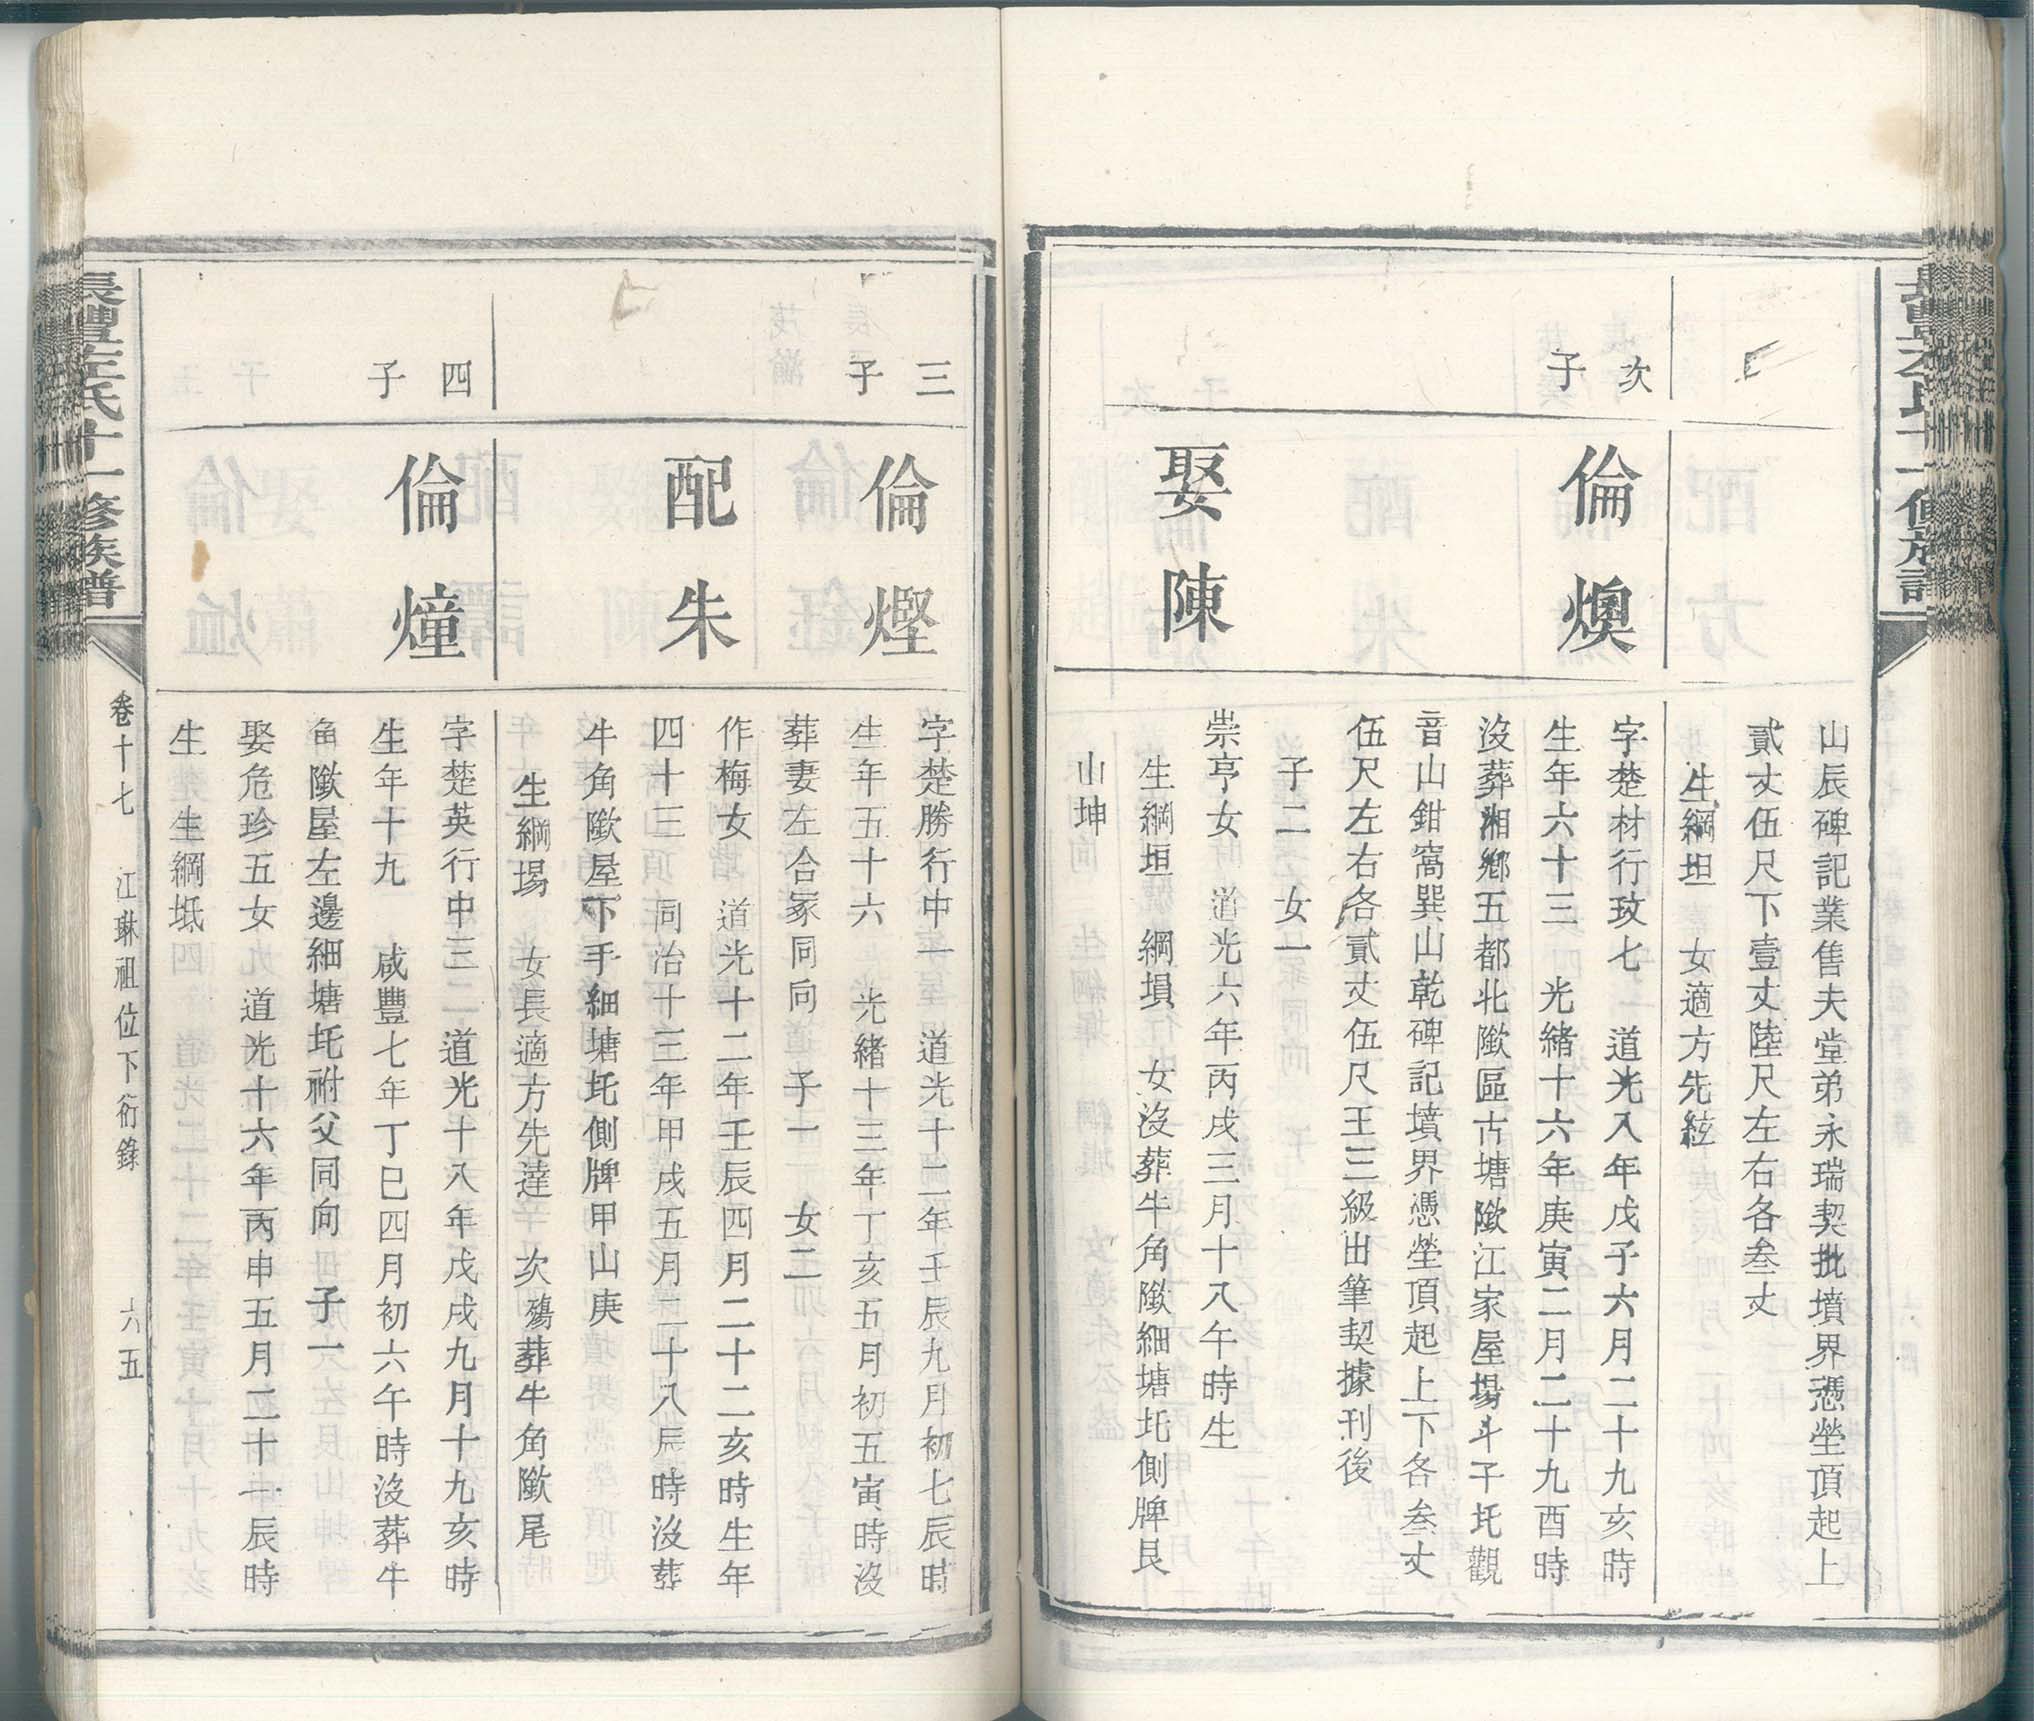 山辰碑記業售夫堂弟永瑞契批墳界憑塋頂起上
貳丈伍尺下壹丈陸尺左右各叁丈
生綱坦 女適方先絃
次子
倫燠
字楚材行玟七 道光八年戊子六月二十九亥時
生年六十三 光緒十六年庚寅二月二十九酉時
沒葬湘鄉五都北歘區古塘歘江家屋場斗子圫觀
音山鉗窩巽山乾碑記墳界憑塋頂起上下各叁丈
伍尺左右各貳丈伍尺王三級出筆契據刊後
子二 女一
娶陳
崇亨女 道光六年丙戌三月十八午時生
生綱垣 綱塤 女沒葬牛角歘細塘圫側牌艮
山坤
三子
倫熞
字楚勝行中一 道光十二年壬辰九月初七辰時
生年五十六 光緒十三年丁亥五月初五寅時沒
葬妻左合冢同向 子一 女二
配朱
作梅女 道光十二年壬辰四月二十二亥時生年
四十三 同治十三年甲戌五月二十八辰時沒葬
牛角歘屋下手細塘圫側牌甲山庚
生綱埸 女長適方先達 次殤葬牛角歘尾
四子
倫燑
字楚英行中三 道光十八年戊戌九月十九亥時
生年十九 咸豐七年丁巳四月初六午時沒葬牛
角歘屋左邊細塘圫祔父同向 子一
娶危珍五女 道光十六年丙申五月二十一辰時
生 生綱坻
長豐左氏十一修族譜
卷十七 江琳祖位下衍錄 六五